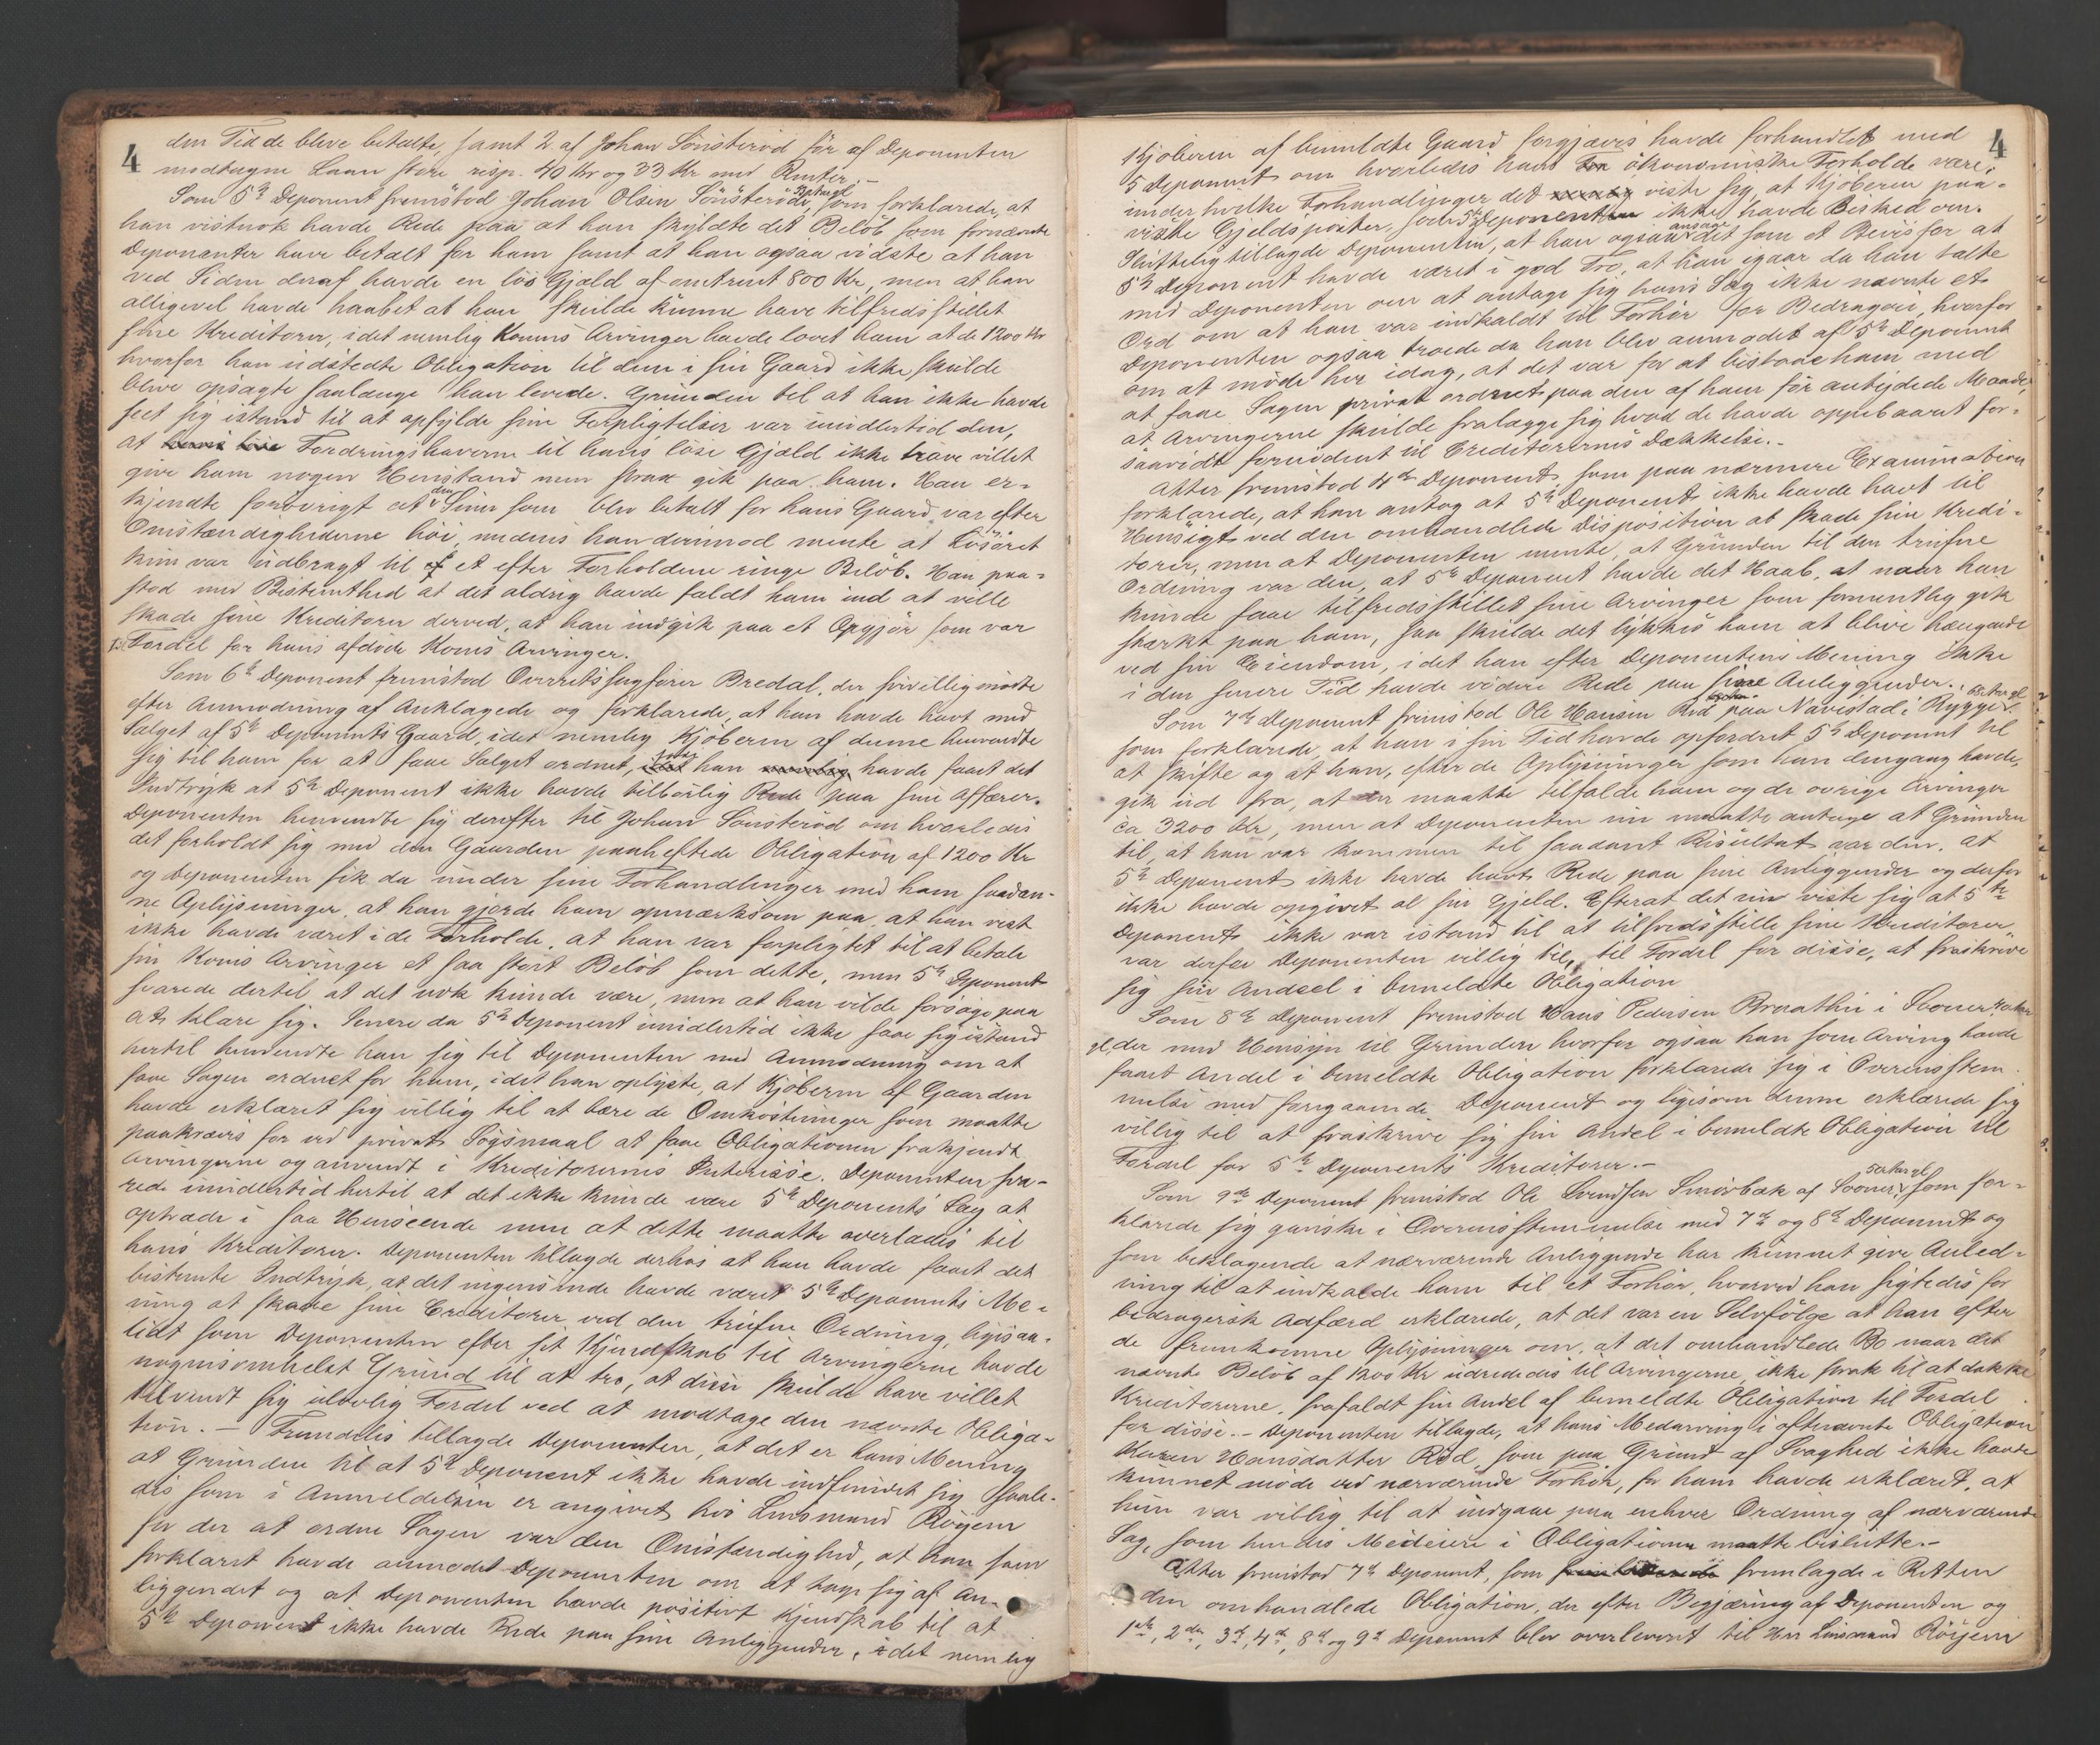 4
den Tid de bleve betalte, samt 2 af Johan Sönsteröd för af Deponenten
modtagne Laan store resp. 40 Kr og 33 Kr med Renter.-
Som 5te Deponent fremstod Johan Olsen Sönsteröd, som forklarede, at
han vistnok havde Rede paa at han skyldte det Belöb som fornævnte
Deponenter have betalt for ham samt at han ogsaa vidste at han
ved Siden deraf havde en lös Gjæld af omtrent 800 Kr, men at han
alligevel havde haabet at han skulde kunne have tilfredsstillet
sine Kreditorer, idet nemlig Konens Arvinger havde lovet ham at de 1200 Kr
hvorfor han udstedte Obligation til dem i sin Gaard ikke skulde
blive opsagte saalænge han levede. Grunden til at han ikke havde
seet sig istand til at opfylde sine Forpligtelser var imidlertid den,
at Fordringshaverne til hans löse Gjæld ikke have villet
give ham nogen Henstand men strax gik paa ham. Han er-
kjendte forövrigt at den Sum som blev betalt for hans Gaard var efter
Omstændighederne höi, medens han derimod mente at Lösöret
kun var udbragt til et efter Forholdene ringe Belöb. Han paa-
stod med Bestemthed at det aldrig havde faldt ham ind at ville
skade sine Kreditorer derved, at han indgik paa et Opgjör som var
til Fordel for hans afdöde Kones Arvinger.
Som 6te Deponent fremstod Overretssagförer Bredal, der frivillig mödte
efter Anmodning af Anklagede og forklarede, at han havde havt med
Salget af 5te Deponents Gaard, idet nemlig Kjöberen af denne henvendte
sig til ham for at faae Salget ordnet, han havde faaet det
Indtryk at 5te Deponent ikke havde tilbörlig Rede paa sine Affærer.
Deponenten henvendte sig derefter til Johan Sönsteröd om hvorledes
det forholdt sig med den Gaarden paaheftede Obligation af 1200 Kr
og Deponenten fik da under sine Forhandlinger med ham saadan-
ne Oplysninger, at han gjorde ham opmærksom paa, at han vist
ikke havde været i de Forholde, at han var forpligtet til at betale
sin Kones Arvinger et saa stort Belöb som dette, men 5te Deponent
svarede dertil at det nok kunde være, men at han vilde forsöge paa
at klare sig. Senere da 5te Deponent imidlertid ikke saae sig istand
hertil henvendte han sig til Deponenten med Anmodning om at
faae Sagen ordnet for ham, idet han oplyste, at Kjöberen af Gaarden
havde erklæret sig villig til at bære de Omkostninger som maatte
paakræves for ved privat Sögsmaal at faae Obligationen frakjendt
Arvingerne og anvendt i Kreditorernes Interesse. Deponenten sva-
rede imidlertid hertil at det ikke kunde være 5te Deponents Sag at
optræde i saa Henseende men at dette maatte overlades til
hans Kreditorer. Deponenten tillagde derhos at han havde faaet det
bestemte Indtryk, at det ingensinde havde været 5te Deponents Me-
ning at skade sine Creditorer ved den trufne Ordning, ligesaa-
lidt som Deponenten efter sit Kjendskab til Arvingerne havde
nogensomhelst Grund til at tro, at disse skulde have villet
tilvendt sig ulovlig Fordel ved at modtage den nævnte Obliga-
tion.- Fremdeles tillagde Deponenten, at det er hans Mening
at Grunden til at 5te Deponent ikke havde indfundet sig saale-
des som i Anmeldelsen er angivet hos Lensmand Röyem
for der at ordne Sagen var den Omstændighed, at han som
forklaret havde anmodet Deponenten om at tage sig af An-
liggendet og at Deponenten havde positivt Kjendskab til at
5te Deponent ikke havde Rede paa sine Anliggender, idet nemlig
4
Kjöberen af bemeldte Gaard forgjæves havde forhandlet med
5 Deponent om hvorledes hans ökonomiske Forholde vare,
under hvilke Forhandlinger det viste sig, at Kjöberen paa-
viste Gjeldsposter, som 5te Deponenten ikke havde Besked om.
Sluttelig tillagde Deponenten, at han ogsaa ansaae det som et Bevis for at
5te Deponent havde været i god Tro, at han igaar da han talte
med Deponenten om at antage sig hans Sag ikke nævnte et
Ord om at han var indkaldt til Forhör for Bedrageri, hvorfor
Deponenten ogsaa troede da han blev anmodet af 5te Deponent
om at möde her idag, at det var for at bistaae ham med
at faae Sagen privat ordnet paa den af ham för antydede Maade,
at Arvingerne skulde fralægge sig hvad de havde oppebaaret for-
saavidt fornödent til Creditorernes Dækkelse.-
Atter fremstod 4de Deponent, som paa nærmere Examination
forklarede, at han antog at 5te Deponent ikke havde havt til
Hensigt ved den omhandlede Disposition at skade sine Kredi-
torer, men at Deponenten mente, at Grunden til den trufne
Ordning var den, at 5te Deponent havde det Haab, at naar han
kunde faae tilfredsstillet sine Arvinger som formentlig gik
stærkt paa ham, saa skulde det lykkes ham at blive hængende
ved sin Eiendom, idet han efter Deponentens Mening ikke
i den senere Tid havde videre Rede paa sine Anliggender.
Som 7de Deponent fremstod Ole Hansen Röd paa Navestad i Rygge,
som forklarede, at han i sin Tid havde opfordret 5te Deponent til
at skifte og at han, efter de Oplysninger som han dengang havde,
gik ud fra, at der maatte tilfalde ham og de övrige Arvinger
ca 3200 Kr, men at Deponenten nu maatte antage at Grunden
til, at han var kommen til saadant Resultat var den, at
5te Deponent ikke havde havt Rede paa sine Anliggender og derfor
ikke havde opgivet al sin Gjeld. Efterat det nu viste sig at 5te
Deponent ikke var istand til at tilfredsstille sine Kreditorer,
var derfor Deponenten villig til, til Fordel for disse, at fraskrive
sig sin Andeel i bemeldte Obligation
Som 8de Deponent fremstod Hans Pedersen Braathen i Sooner
der med Hensyn til Grunden hvorfor ogsaa han som Arving havde
faaet Andel i bemeldte Obligation forklarede sig i Overensstem-
melse med foregaaende Deponent og ligesom denne erklærede sig
villig til at fraskrive sig sin Andel i bemeldte Obligation til
Fordel for 5te Deponents Kreditorer.-
Som 9de Deponent fremstod Ole Svendsen Smörbæk af Sooner, som for-
klarede sig ganske i Overensstemmelse med 7de og 8de Deponent og
som beklagende at nærværende Anliggende har kunnet give Anled-
ning til at indkalde ham til et Forhör, hvorved han sigtedes for
bedragersk Adfærd erklærede, at det var en Selvfölge at han efter
de fremkomne Oplysninger om, at det omhandlede Bo naar det
nævnte Belöb af 1200 Kr udrededes til Arvingerne, ikke strak til at dække
Kreditorerne, frafaldt sin Andel af bemeldte Obligation til Fordel
for disse.- Deponenten tillagde, at hans Medarving i oftnævnte Obligation
Maren Hansdatter Röd, som paa Grund af Svaghed ikke havde
kunnet möde ved nærværende Forhör, for ham havde erklæret, at
hun var villig til at indgaae paa enhver Ordning af nærværende
Sag, som hendes Medeiere i Obligationen maatte beslutte.-
Atter fremstod 7de Deponent, som fremlagde i Retten
den omhandlede Obligation, der efter Begjæring af Deponenten og
1ste, 2den, 3d, 4d, 8d og 9d Deponent blev overleveret til Herr Lensmand Röyem